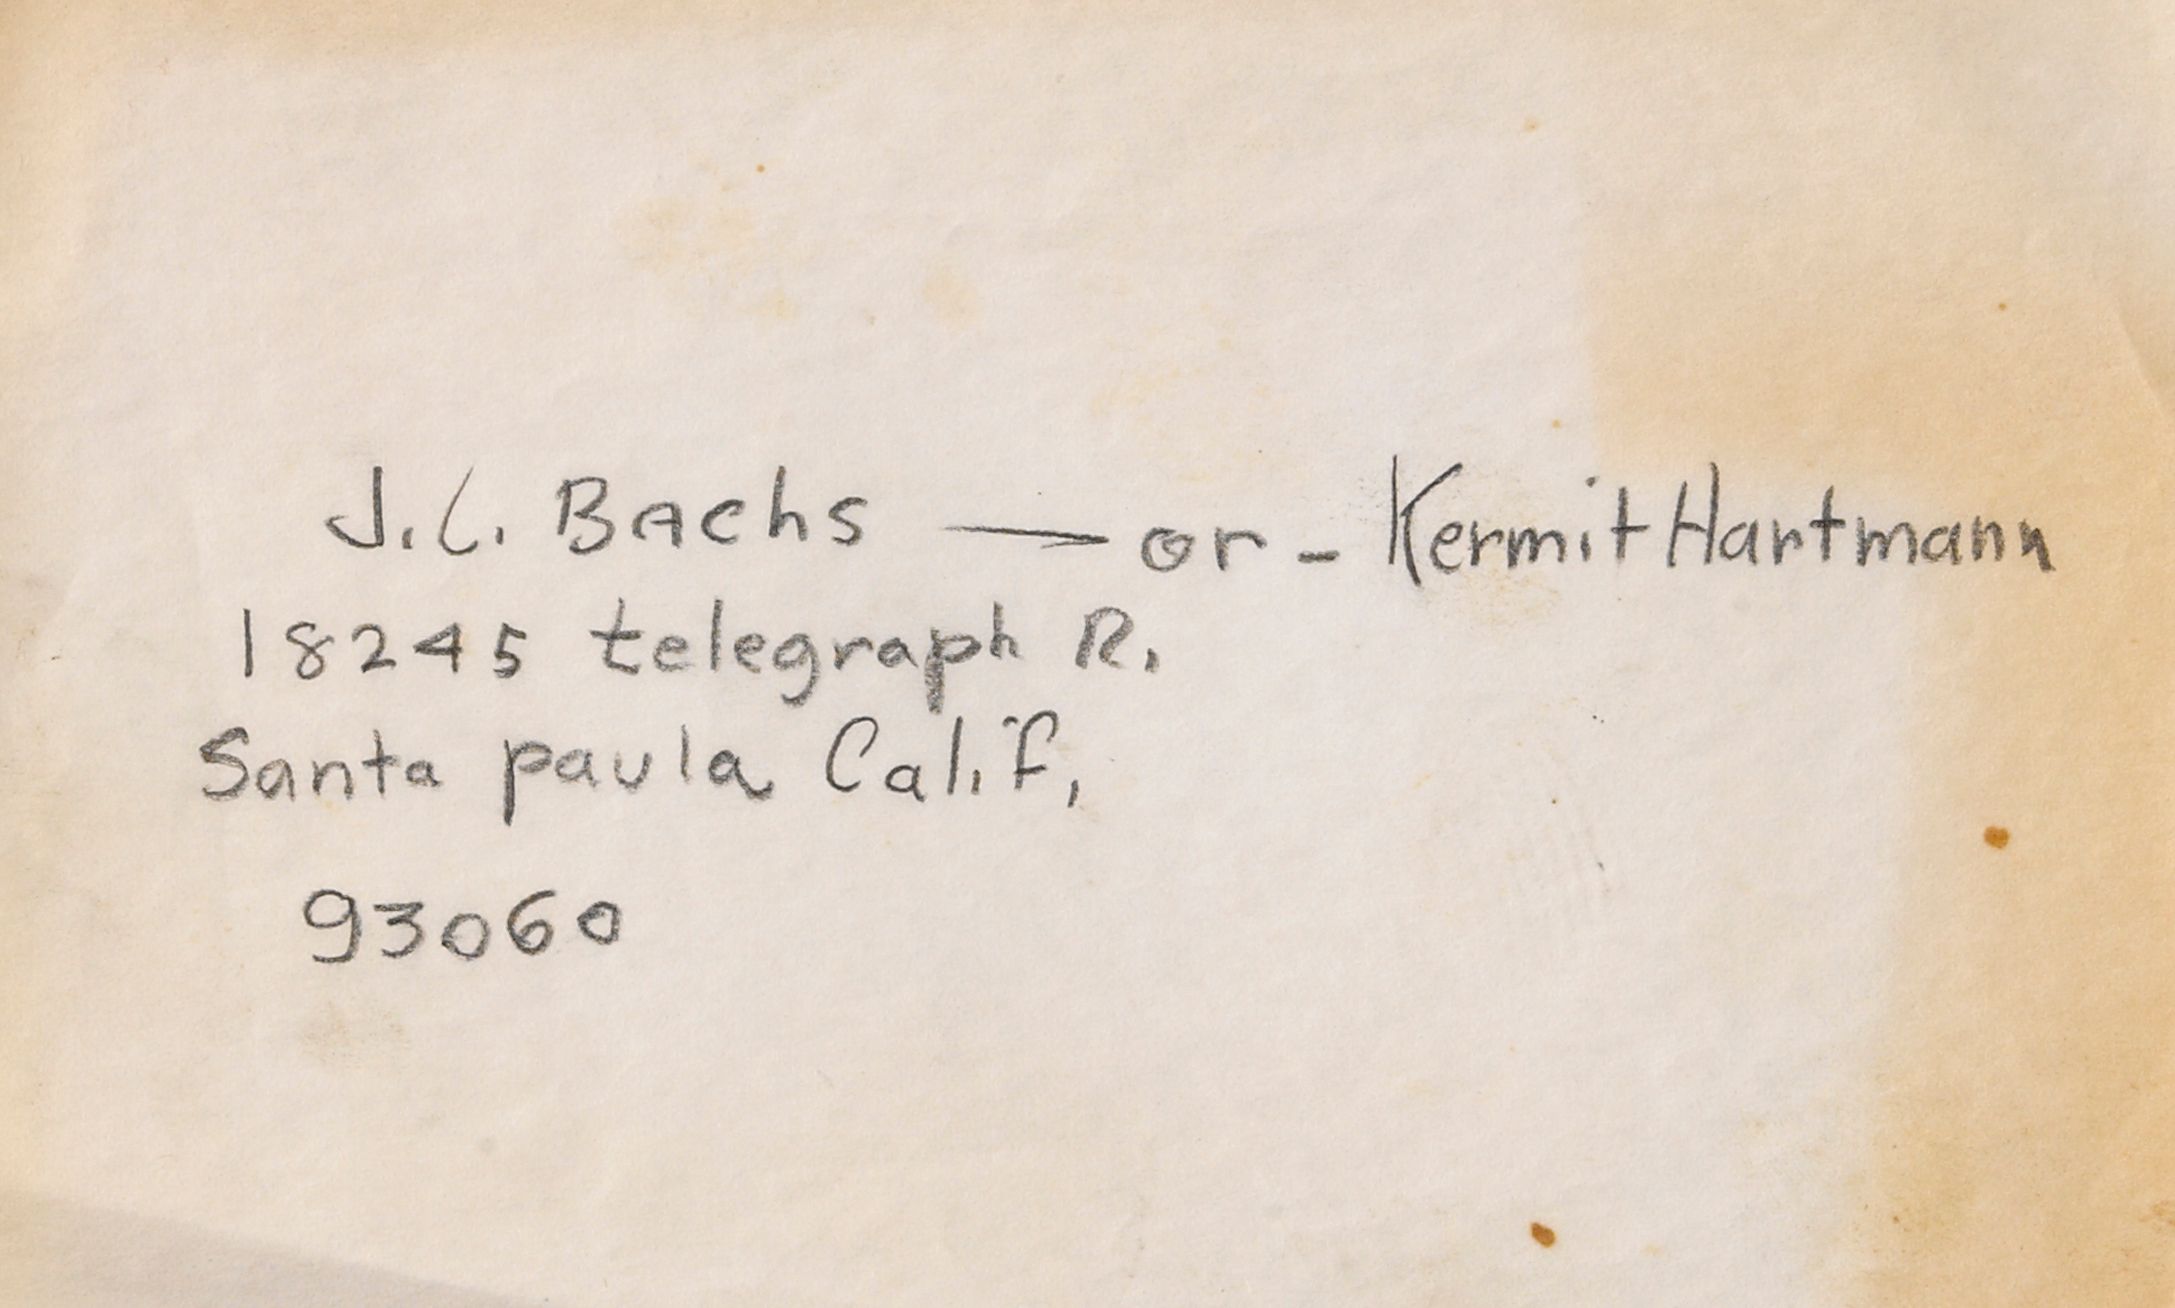 J.C. BAchs — or - Kermit Hartmann
18245 telegraph R.
Santa paula Calif.
93060